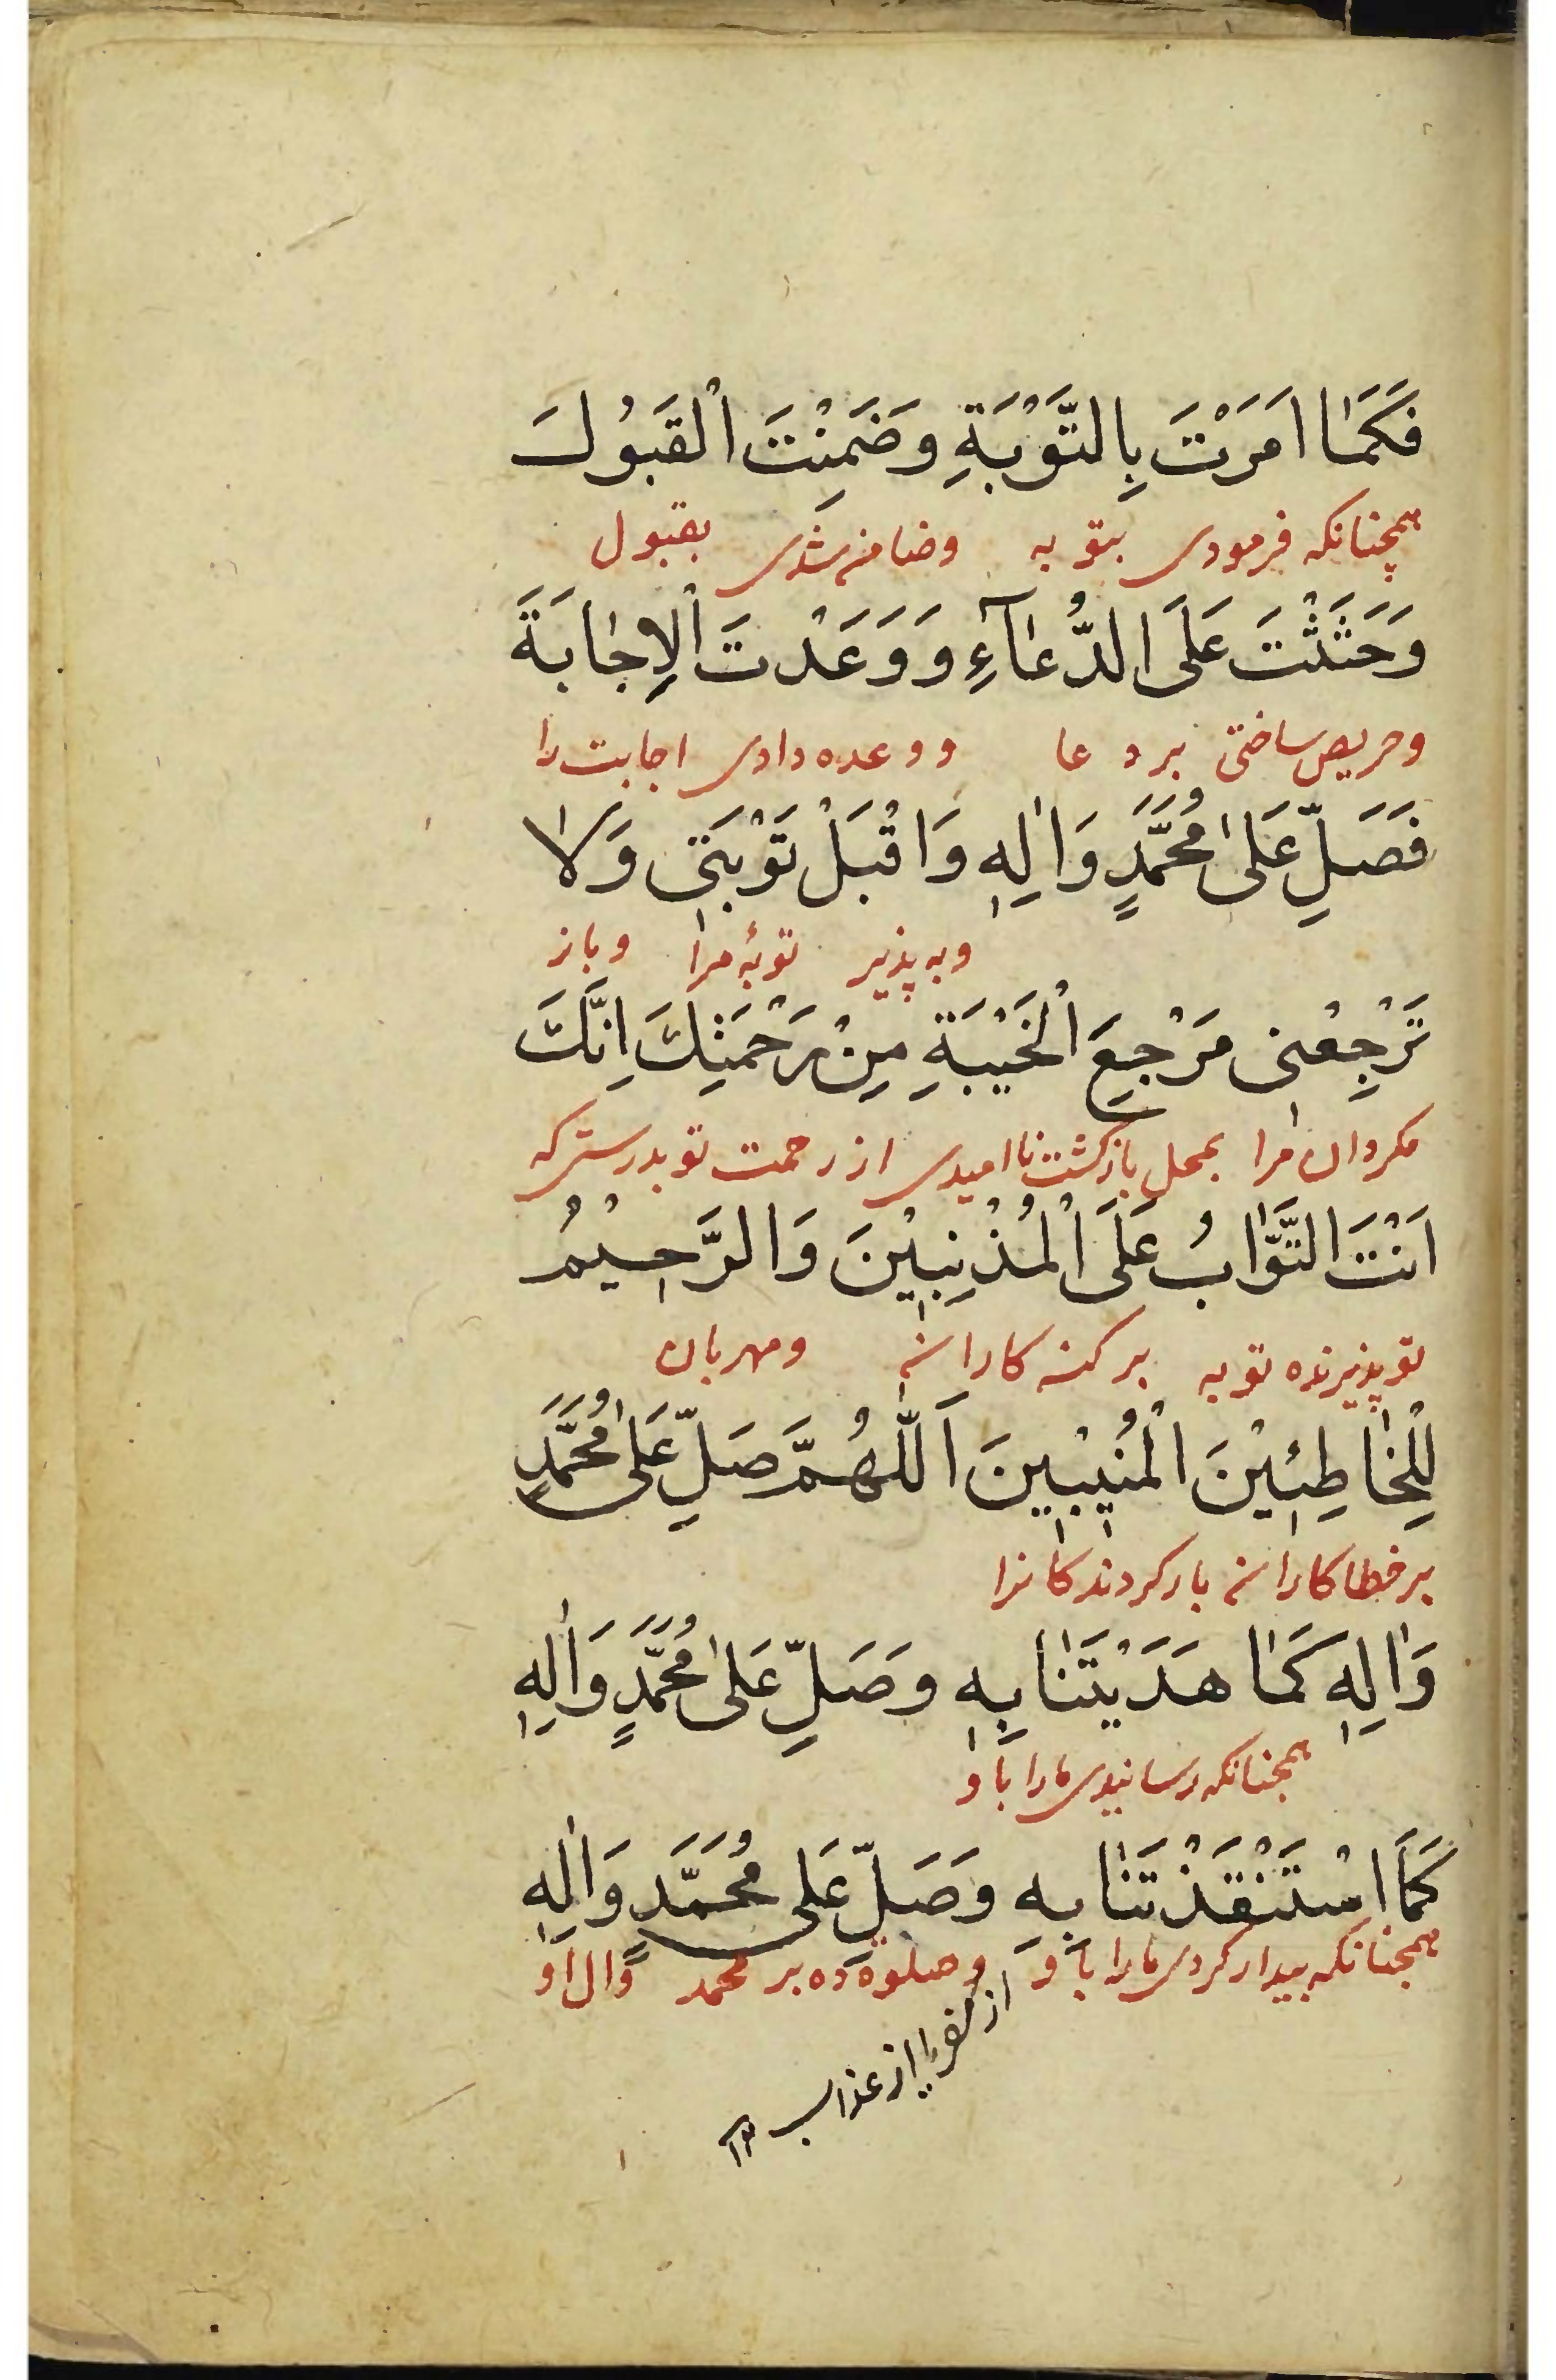 فَكَمٰا اَمَرْتَ بِالتَّوْبَةِ وَضَمِنْتَ الْقَبُولَ
همچنانکه فرمودی بتوبه وضامن شدی بقبول
وَحَثَثْتَ عَلَى الدُّعٰآءِ وَوَعَدْتَ الْاِجٰابَةَ
وحریص ساختی بردعا ووعده دادی اجابت را
فَصَلِّ عَلىٰ مُحَمَّدٍ وَاٰلِهٖ وَاقْبَلْ تَوْبَتٖى وَلٰا
وبه پذیر توبهٔ مرا وباز
تَرْجِعْنٖى مَرْجِعَ الْخَيْبَةِ مِنْ رَحْمَتِكَ اِنَّكَ
مکردان مرا بمحل بازکشت ناامیدی از رحمت تو بدرستی که
اَنْتَ التَّوّٰابُ عَلَى الْمُذْنِبٖيْنَ وَالرَّحٖيْمُ
تو پذیرنده توبه بر کنه کاران ومهربان
لِلْخٰاطِئٖيْنَ الْمُنٖيْبٖيْنَ اَللّٰهُمَّ صَلِّ عَلىٰ مُحَمَّدٍ
بر خطاکاران باز کردندکانرا
وَاٰلِهٖ كَمٰا هَدَيْتَنٰا بِهٖ وَصَلِّ عَلىٰ مُحَمَّدٍ وَاٰلِهٖ
همچنانکه رسانیدی مارا باو
كَمَا اسْتَنْقَذْتَنٰا بِهٖ وَصَلِّ عَلى مُحَمَّدٍ وَاٰلِهٖ
همچنانکه بیدار کردی مارا باو وصلوة ده بر محمد وال او
از کفر یا از عذاب